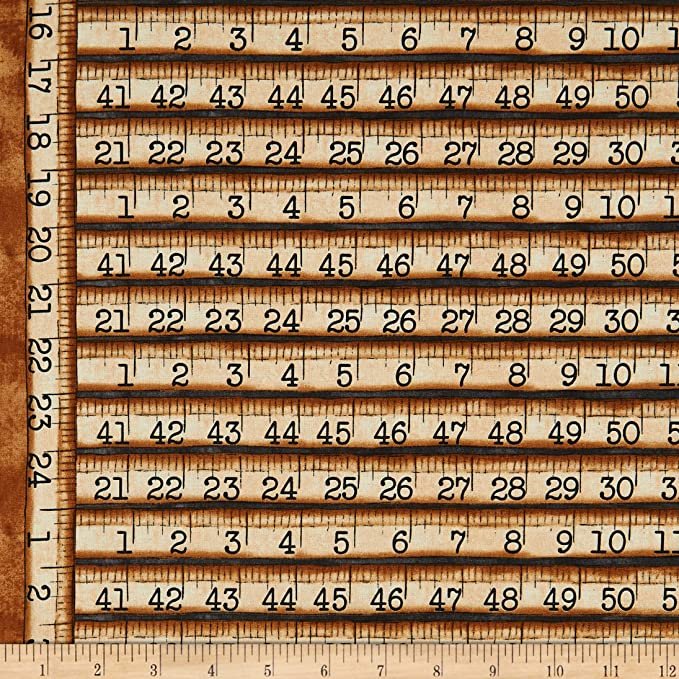 16
17
18
19
20
21
22
23
24
1
2
1 2 3 4 5 6 7 8 9 10
41 42 43 44 45 46 47 48 49 50
21 22 23 24 25 26 27 28 29 30
1 2 3 4 5 6 7 8 9 10
41 42 43 44 45 46 47 48 49 50
21 22 23 24 25 26 27 28 29 30
1 2 3 4 5 6 7 8 9 10 11
41 42 43 44 45 46 47 48 49 50
21 22 23 24 25 26 27 28 29 30
1 2 3 4 5 6 7 8 9 10 11
41 42 43 44 45 46 47 48 49 50
1 2 3 4 5 6 7 8 9 10 11 12